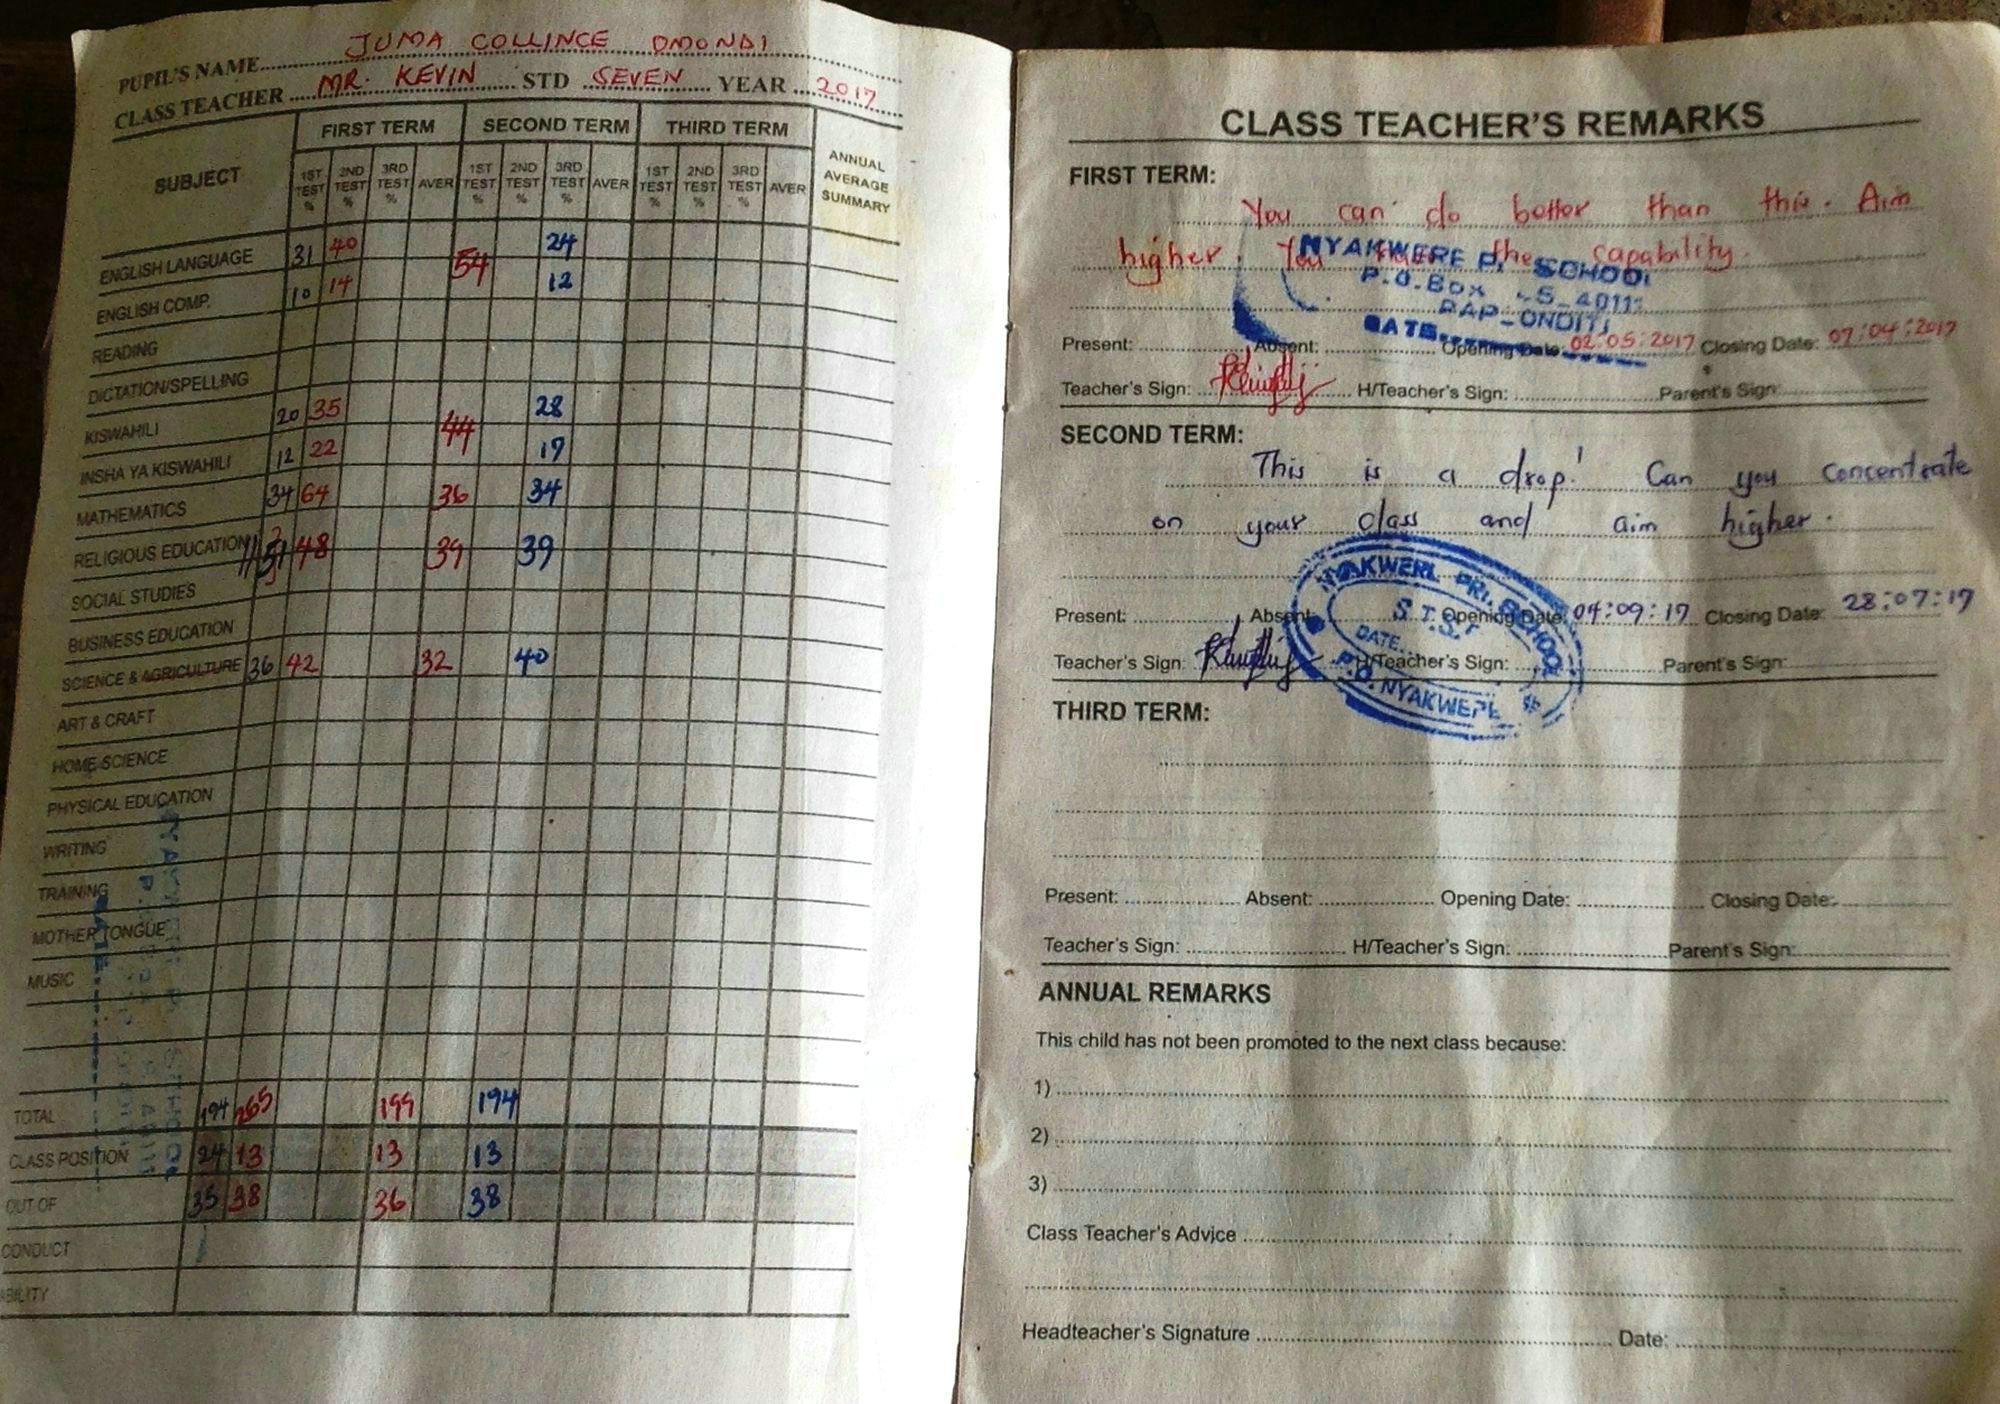 PUPIL'S NAME JUMA COLLINCE OMONDI
CLASS TEACHER MR. KEVIN STD SEVEN YEAR 2017
SUBJECT FIRST TERM SECOND TERM THIRD TERM ANNUAL AVERAGE SUMMARY
1ST TEST % 2ND TEST % 3RD TEST % AVER 1ST TEST % 2ND TEST % 3RD TEST % AVER 1ST TEST % 2ND TEST % 3RD TEST % AVER
ENGLISH LANGUAGE 31 40 54 24
ENGLISH COMP. 10 14 12
READING
DICTATION/SPELLING
KISWAHILI 20 35 44 28
INSHA YA KISWAHILI 12 22 17
MATHEMATICS 34 64 36 34
RELIGIOUS EDUCATION 51 48 39 39
SOCIAL STUDIES
BUSINESS EDUCATION
SCIENCE & AGRICULTURE 36 42 32 40
ART & CRAFT
HOME SCIENCE
PHYSICAL EDUCATION
WRITING
TRAINING
MOTHER TONGUE
MUSIC
TOTAL 194 265 199 194
CLASS POSITION 24 13 13 13
OUT OF 35 38 36 38
CONDUCT
ABILITY
CLASS TEACHER'S REMARKS
FIRST TERM:
You can do better than this. Aim
higher. You have the capability.
NYAKWERE P. SCHOOL
P.O. Box 40111
PAP-ONDITI
DATE
Present: Absent: Opening Date: 02:05:2017 Closing Date: 07:04:2017
Teacher's Sign: H/Teacher's Sign: Parent's Sign:
SECOND TERM:
This is a drop! Can you concentrate
on your class and aim higher.
NYAKWERE PRI. SCHOOL
DATE
P.O. NYAKWERE
Present: Absent: Opening Date: 04:09:17 Closing Date: 28:07:17
Teacher's Sign: H/Teacher's Sign: Parent's Sign:
THIRD TERM:
Present: Absent: Opening Date: Closing Date:
Teacher's Sign: H/Teacher's Sign: Parent's Sign:
ANNUAL REMARKS
This child has not been promoted to the next class because:
1)
2)
3)
Class Teacher's Advice
Headteacher's Signature Date: